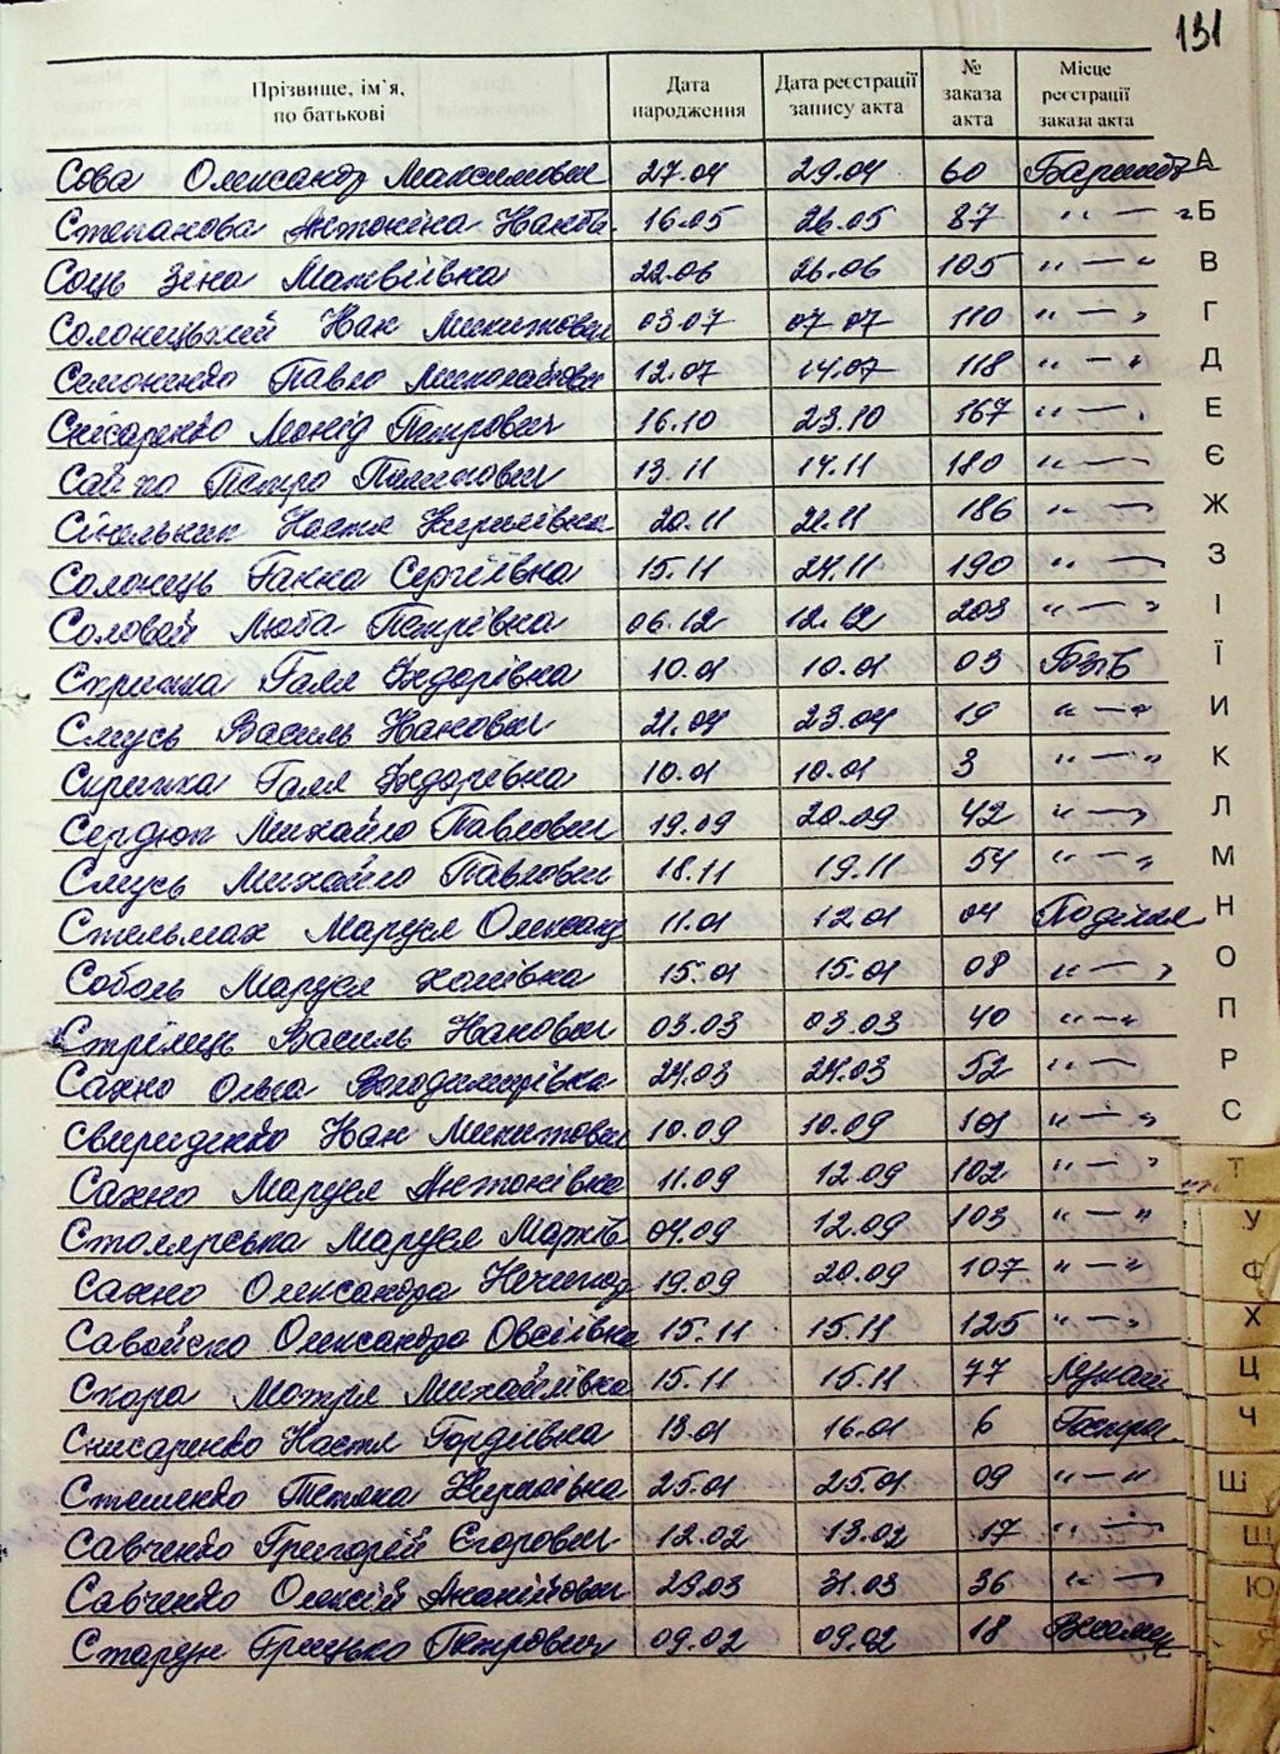 131
Прізвище, ім'я, по батькові | Дата народження | Дата реєстрації запису акта | № заказа акта | Місце реєстрації заказа акта
Сова Олександр Максимович 27.04 29.04 60
Степанова Антоніна Іванів. 16.05 26.05 87 " — "
Соць Зіна Матвіївна 22.06 26.06 105 " — "
Солоницький Іван Микитович 03.07 07.07 110 " — "
Семоненко Павло Миколайович 12.07 14.07 118 " — "
Снісаренко Леонід Петрович 16.10 23.10 167 " — "
Петро 13.11 14.11 180 " — "
Настя Кирилівна 20.11 21.11 186 " — "
Солонець Ганна Сергіївна 15.11 24.11 190 " — "
Соловей Люба Петрівна 06.12 12.12 203 " — "
Скрипка Галя Федорівна 10.01 10.01 03
Смусь Василь Іванович 21.04 23.04 19 " — "
Скрипка Галя Федорівна 10.01 10.01 3 " — "
Сердюк Михайло Павлович 19.09 20.09 42 " — "
Смусь Михайло Павлович 18.11 19.11 54 " — "
Стельмах Маруся Олександ 11.01 12.01 04
Соболь Маруся Хомівна 15.01 15.01 08 " — "
Стрілець Василь Іванович 03.03 03.03 40 " — "
Сахно Ольга Володимирівна 24.03 24.03 52 " — "
Свириденко Іван Микитович 10.09 10.09 101 " — "
Сахно Маруся Антонівна 11.09 12.09 102 " — "
Столярська Маруся Марків 04.09 12.09 103 " — "
Сахно Олександра Нечипор 19.09 20.09 107 " — "
Савойско Олександра Овсіївна 15.11 15.11 125 " — "
Скора Мотря Михайлівна 15.11 15.11 77
Снисаренко Настя Гордіївна 13.01 16.01 6
Стешенко Тетяна Кирилівна 25.01 25.01 09 " — "
Савченко Григорій Єгорович 12.02 13.02 17 " — "
Савченко Олексій Ананійович 29.03 31.03 36 " — "
Старун Грицько Петрович 09.02 09.02 18
А
Б
В
Г
Д
Е
Є
Ж
З
І
Ї
И
К
Л
М
Н
О
П
Р
С
Т
У
Ф
Х
Ц
Ч
Ш
Щ
Ю